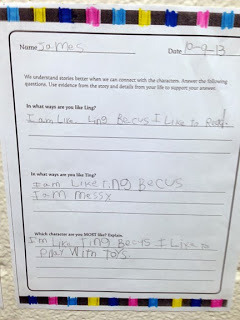 Name James Date 10-9-13
We understand stories better when we can connect with the characters. Answer the following
questions. Use evidence from the story and details from your life to support your answer.
In what ways are you like Ling?
I am Like Ling Becus I Like to Read.
In what ways are you like Ting?
I am Like Ting Becus
I am messy
Which character are you MOST like? Explain.
I'm Like Ting Becus I Like to
Play With Toys.